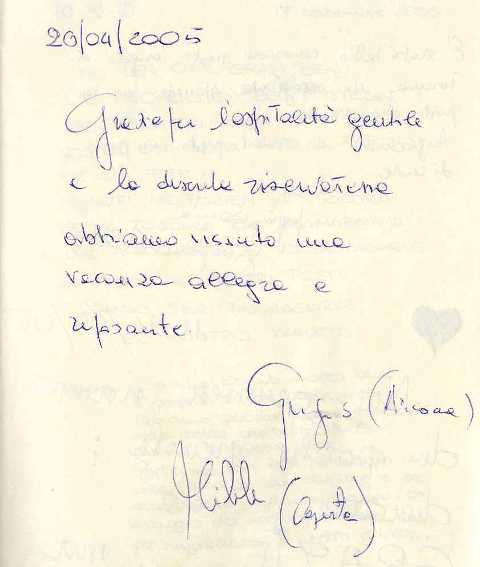 20/04/2005
Grazie per l'ospitalità gentile
e la discreta riservatezza
abbiamo vissuto una
vacanza allegra e
riposante.
(Ancona)
(Caserta)